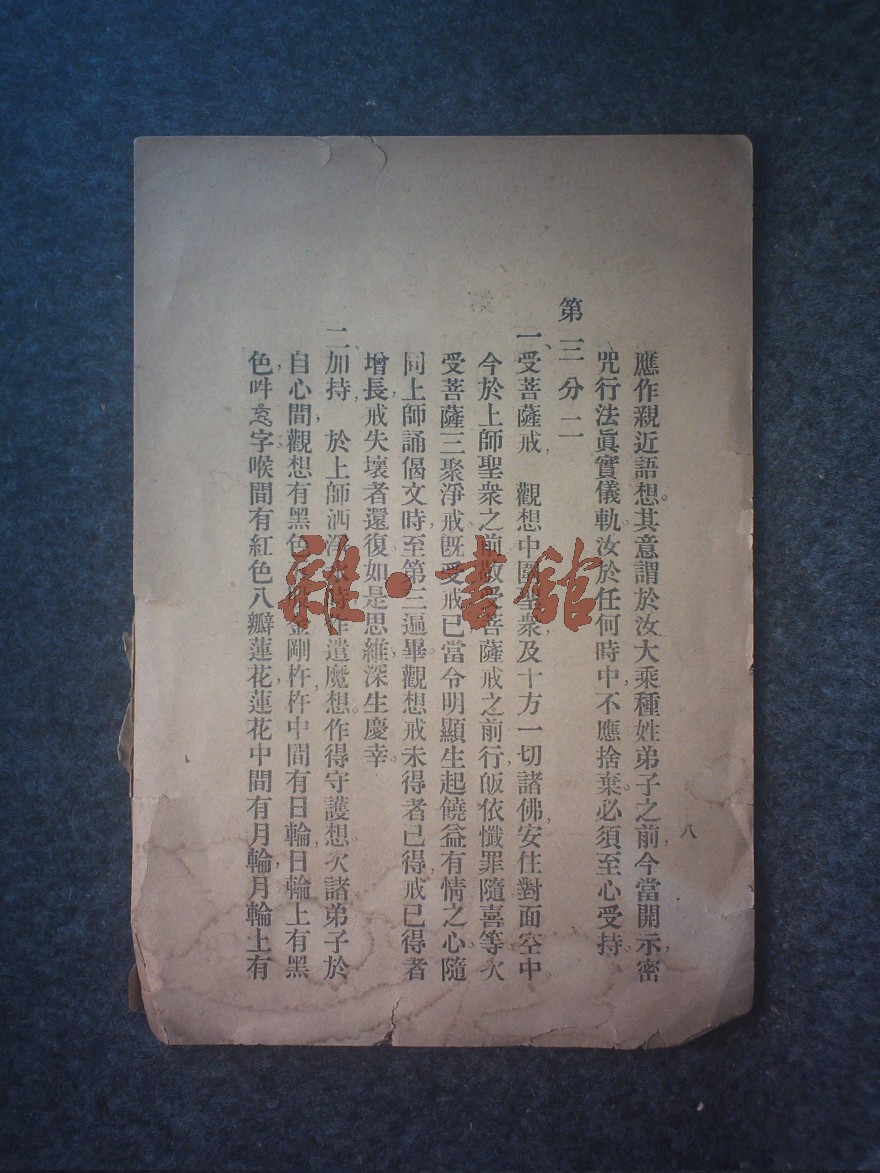 應作親近語想。其意謂於汝大乘種姓弟子之前，今當開示密
咒行法眞實儀軌，汝於任何時中，不應捨棄，必須至心受持。
第三分二
一、受菩薩戒，觀想中圍聖衆及十方一切諸佛，安住對面空中，
今於上師聖衆之前，敬受菩薩戒之前行皈依懺罪隨喜等。次
受菩薩三聚淨戒。旣受戒已，當令明顯生起饒益有情之心。隨
同上師誦偈文時，至第三遍畢，觀想戒未得者已得，戒已得者
增長，戒失壞者還復，如是思維，深生慶幸。
二、加持，於上師洒淨水時，作遣魔想，作得守護想。次諸弟子於
自心間，觀想有黑色 金剛杵，杵中間有日輪，日輪上有黑
色吽 字。喉間有紅色八瓣蓮花，蓮花中間有月輪，月輪上有
八
雜·書館